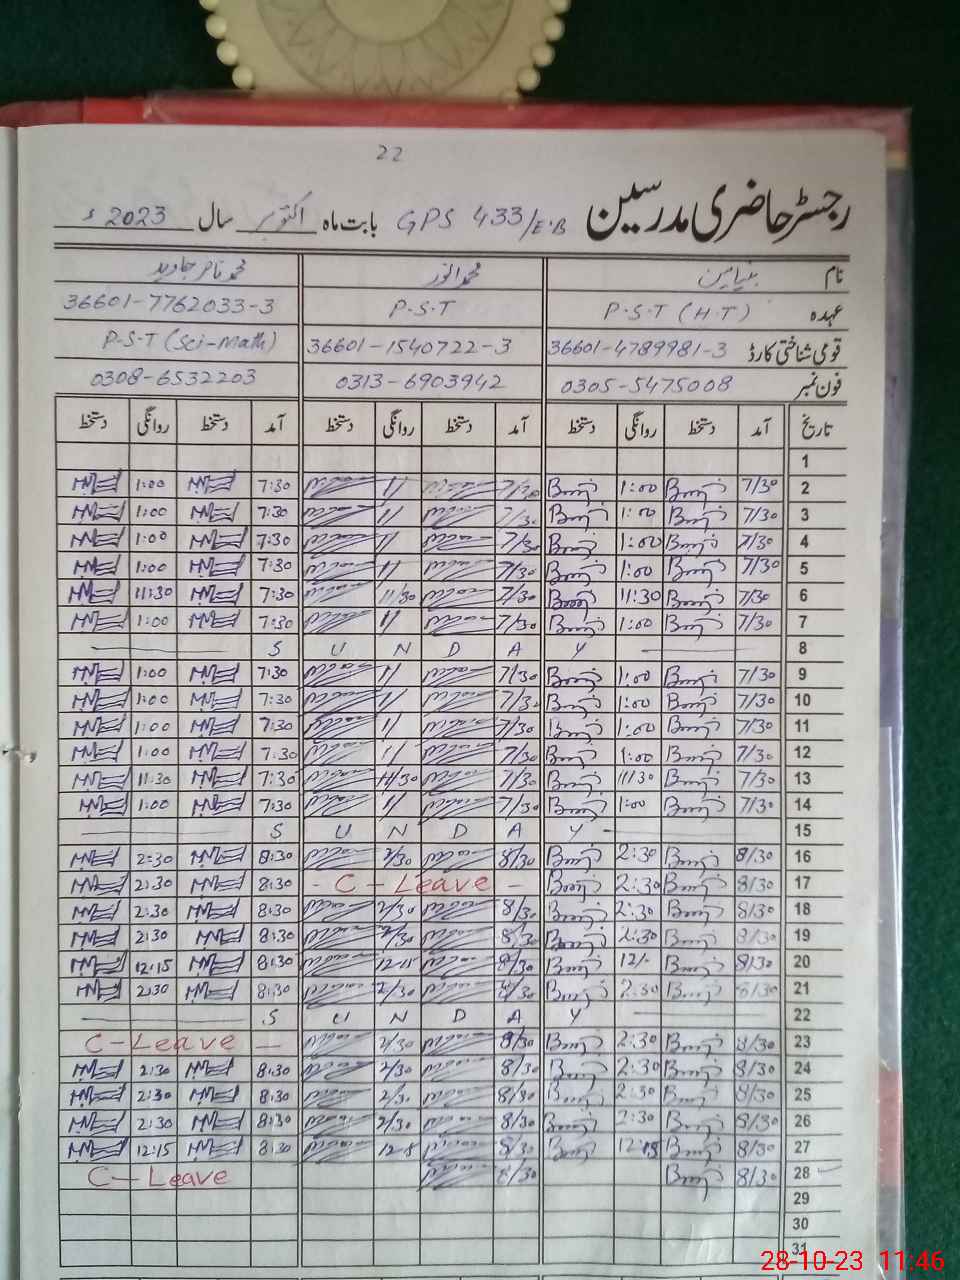 22
رجسٹر حاضری مدرسین GPS 433/E.B بابت ماہ اکتوبر سال 2023ء
نام بنیامین محمد انور محمد ناصر جاوید
عہدہ P.S.T (H.T) P.S.T 36601-7762033-3
قومی شناختی کارڈ 36601-4789981-3 36601-1540722-3 P.S.T (Sci-Math)
فون نمبر 0305-5475008 0313-6903942 0308-6532203
تاریخ آمد دستخط روانگی دستخط آمد دستخط روانگی دستخط آمد دستخط روانگی دستخط
1
2 7/30 1:00 7/30 11 7:30 1:00
3 7/30 1:00 7/30 11 7:30 1:00
4 7/30 1:00 7/30 11 7:30 1:00
5 7/30 1:00 7/30 11 7:30 1:00
6 7/30 11:30 7/30 11/30 7:30 11:30
7 7/30 1:00 7/30 11 7:30 1:00
8 S U N D A Y
9 7/30 1:00 7/30 11 7:30 1:00
10 7/30 1:00 7/30 11 7:30 1:00
11 7/30 1:00 7/30 11 7:30 1:00
12 7/30 1:00 7/30 11 7:30 1:00
13 7/30 11/30 7/30 11/30 7:30 11:30
14 7/30 1:00 7/30 11 7:30 1:00
15 S U N D A Y
16 8/30 2:30 8/30 2/30 8:30 2:30
17 8/30 2:30 - C - Leave - 8:30 2:30
18 8/30 2:30 8/30 2/30 8:30 2:30
19 8/30 2:30 8/30 2/30 8:30 2:30
20 8/30 12/- 8/30 12-15 8:30 12:15
21 8/30 2:30 8/30 2/30 8:30 2:30
22 S U N D A Y
23 8/30 2:30 8/30 2/30 C-Leave -
24 8/30 2:30 8/30 2/30 8:30 2:30
25 8/30 2:30 8/30 2/30 8:30 2:30
26 8/30 2:30 8/30 2/30 8:30 2:30
27 8/30 12:15 8/30 8:30 12:15
28 8/30 8/30 C- Leave
29
30
31
28-10-23 11:46